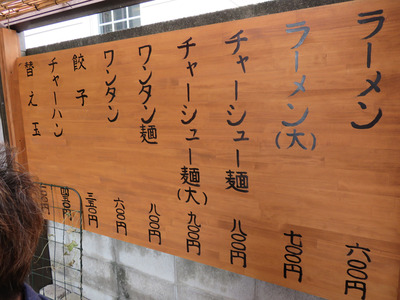 ラーメン 六〇〇円
ラーメン(大) 七〇〇円
チャーシュー麺 八〇〇円
チャーシュー麺(大) 九〇〇円
ワンタン麺 八〇〇円
ワンタン 六〇〇円
餃子
チャーハン
替え玉